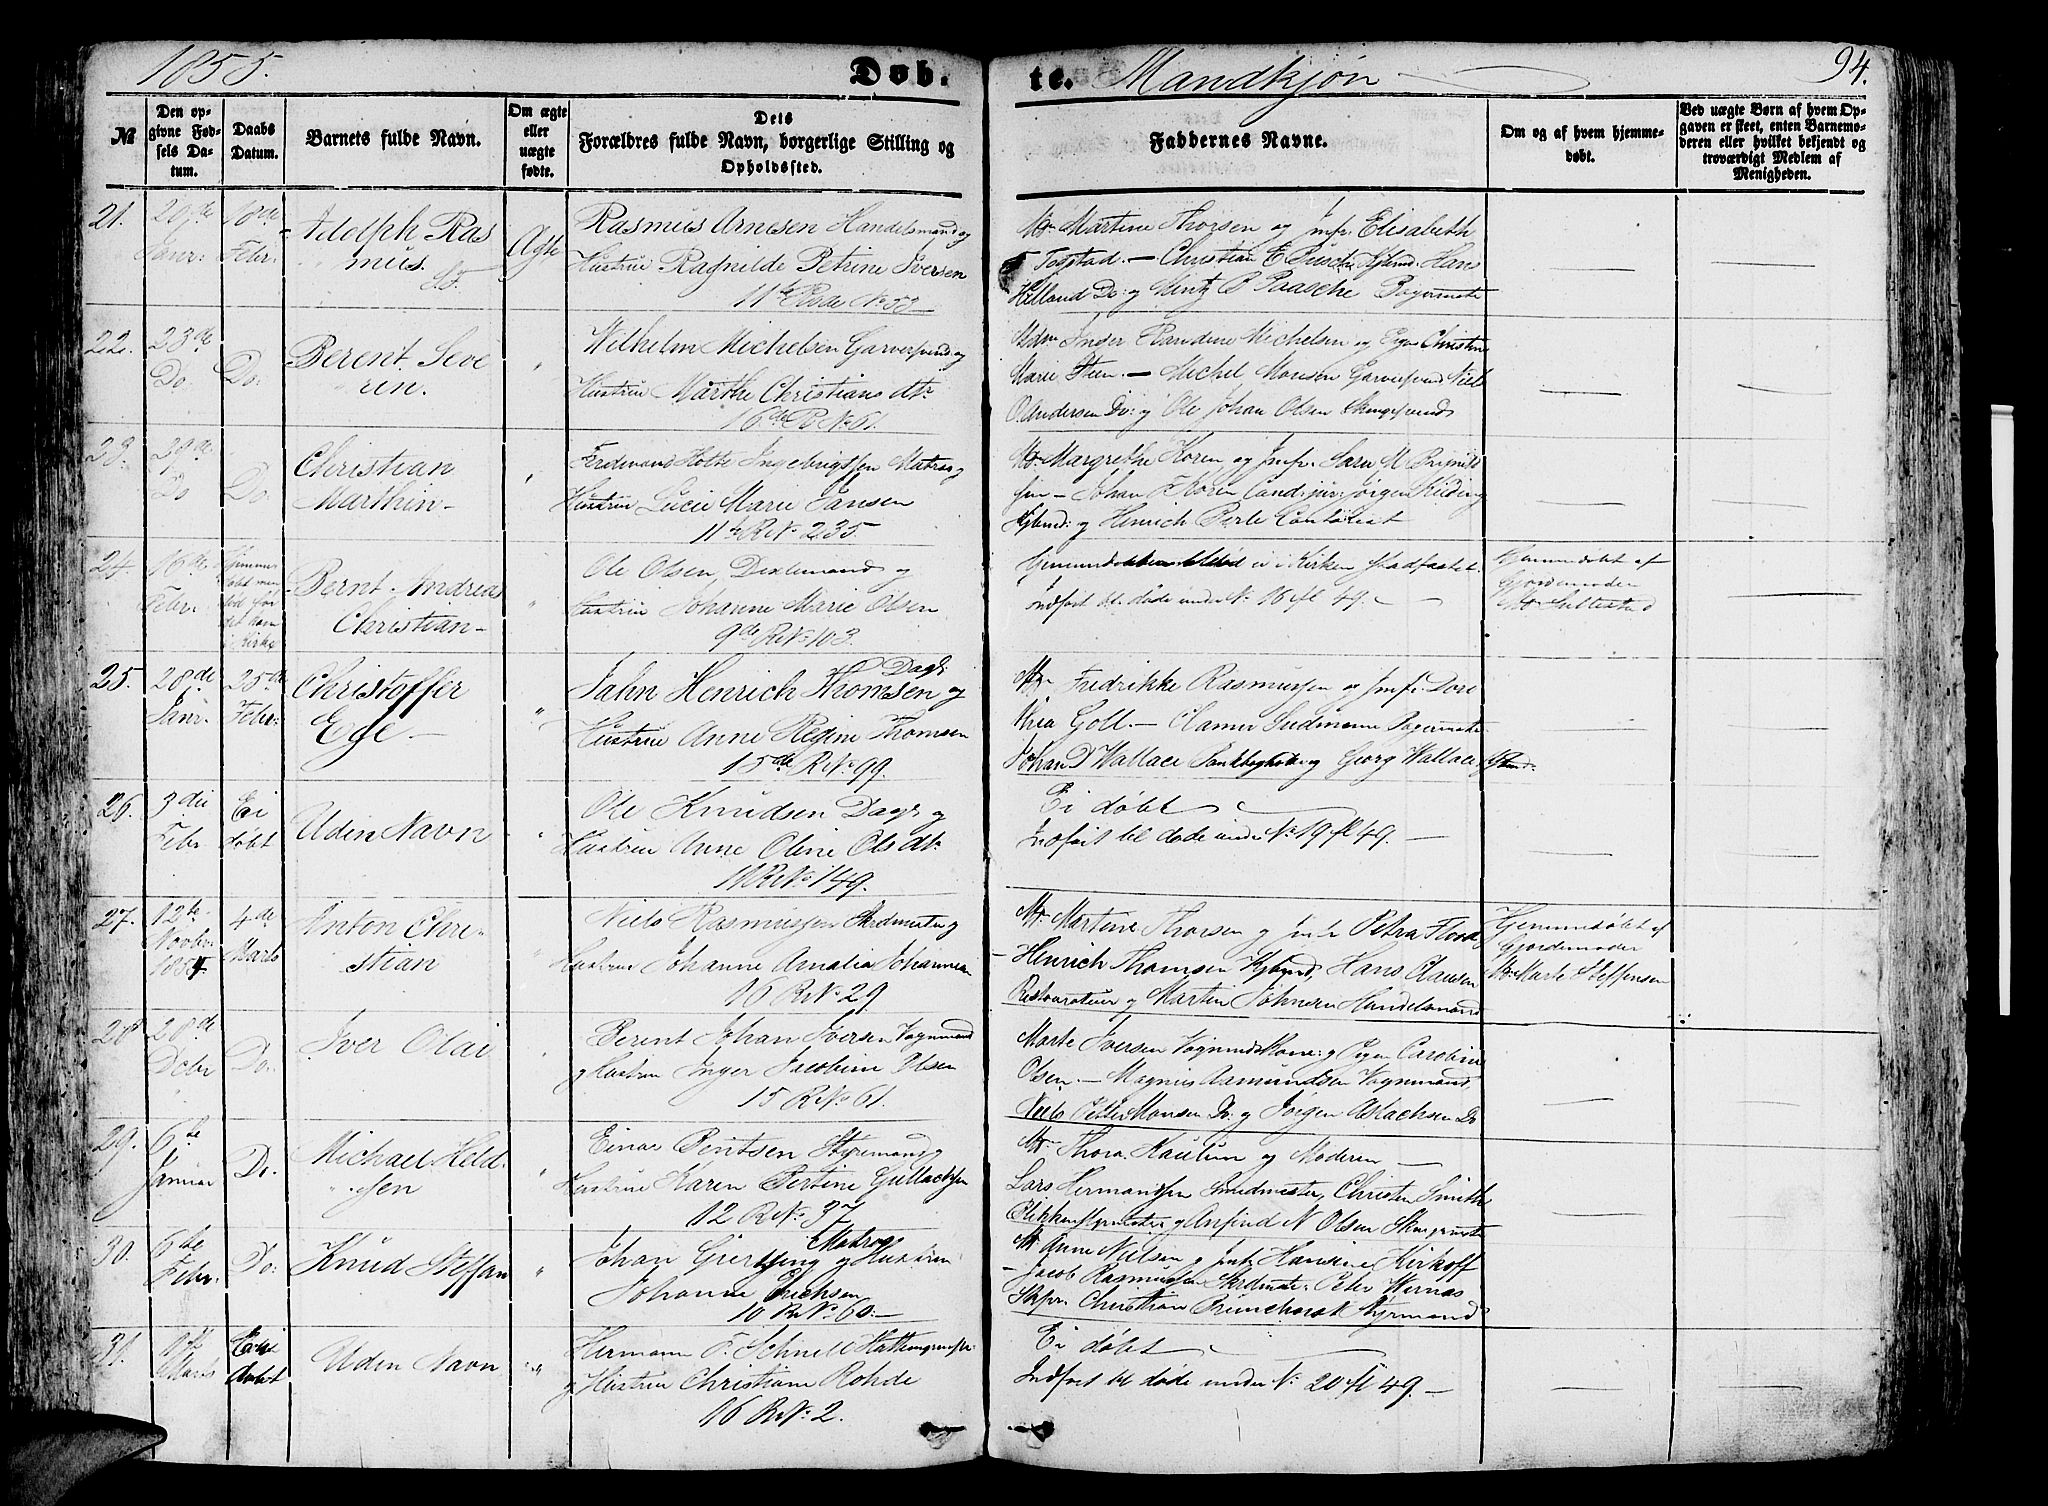 1855.
Døb-
te.
Mandkjøn
94.
№
Den op-
givne Fød-
sels Da-
tum.
Daabs
Datum.
Barnets fulde Navn.
Om ægte
eller
uægte
fødte.
Dets
Forældres fulde Navn, borgerlige Stilling og
Opholdssted.
Faddernes Navne.
Om og af hvem hjemme-
døbt.
Ved uægte Børn af hvem Op-
gaven er skeet, enten Barnemo-
deren eller hvilket bekjendt og
troværdigt Medlem af
Menigheden.
21.
Janr:
18de
Febr:
Adolph Ras
mus.
Ægte
Rasmus Arnesen Handelsmand og
Hustrue Ragnilde Petrine Iversen
11te Rode No 53
Martine Thorsen og Jmfr. Elisabeth
Togstad. — Christian E Kjbmd. Hans
Helland Do: og Mintz P Paasche Bagermester
22.
23de
Do.
Do:
Berent Seve
ren.
"
Wilhelm Michelsen Garversvend og
Hustrue Marthe Christians dtr
16de R No 61.
Inger Randine Michelsen og Pigen Christine
Marie Steen. — Michel Monsen Garversvend Niels
O. Andersen Do: og Ole Johan Olsen
23.
29de
Do
Do:
Christian
Marthin —
"
Ferdinand Holte Ingebrigtsen Matros og
Hustrue Lucie Marie Jansen
11te R No 235.
Margrethe Koren og Jmfr. Sara M
— Johan F Koren Cand: jur: Jørgen
Kjbmd: og Henrich Perle Contorist
24.
16de
Febr.
i Kirke
Bernt Andreas
Christian —
"
Ole Olsen, og
Hustrue Johanne Marie Olsen
9de R No 103.
ei i Kirken stadfæstet.
Indført til døde under No 16 fl 49. —
Hjemmedøbt af
Gjordemoder
25.
28de
Janr.
25de
Febr:
Christoffer
Ege —
"
Jahn Henrich Thomsen Dagk. og
Hustrue Anne Regine Thomsen
15de R No 99.
Fredrikke Rasmussen og Jmfr. Doro
thea Goll. — Bagermester
Johan D Wallace og Georg Wallace
26.
3die
Febr
Ei
døbt
Uden Navn
"
Ole Knudsen Dagk og
Hustrue Anne Oline Olsdtr
11 R No 149.
Ei døbt
Indført til døde under No 19 fl 49. —
27.
12te
Novbr.
1854.
4de
Marts
Anton Chri-
stian
"
Niels Rasmussen Skrdmester og
Hustrue Johanne Amalia Johannesen
16 R No 29
Martine Thorsen og Jmfr Petra Flood
— Henrich Thomsen Kjbmd, Hans Clausen
Restaurateur og Martin Handelsmand
Hjemmedøbt af
Gjordemoder
Marte Steffensen
28
28de
Decbr
Do:
Iver Olai
"
Berent Johan Iversen Vognmand
og Hustrue Inger Jacobine Olsen
15 R No 61.
Marte Iversen Vognmds Kone: og Pigen Caroline
Olsen. — Magnus Asmundsen Vognmand,
Niels Petter Monsen Do: og Jørgen Aslachsen Do
29.
6te
Januar
Do.
Michael Held-
"
Einar Bentsen Styrmand og
Hustrue Karen Bertine Gullachsen
12 R No 37
Thora Kaurum og Moderen —
Lars Hermandsen Smedmester, Christen Smith
og Anfind N Olsen
30.
6te
Febr.
Do:
Knud Steffan
"
Johan Matros og Hustrue
Johanne Erichsen
10 R No 60. —
Anne Nielsen og Jmfr Hansine Kirkoff
— Jacob Rasmussen Skrdmstr. Peter Wernøs
Skpr. Christian Styrmand
31.
Marts
Ei
døbt
Uden Navn
Hermann F. Schnell
og Hustrue Christiane Rohde
16 R No 2.
Ei døbt
Indført til døde under No 20 fl 49. —